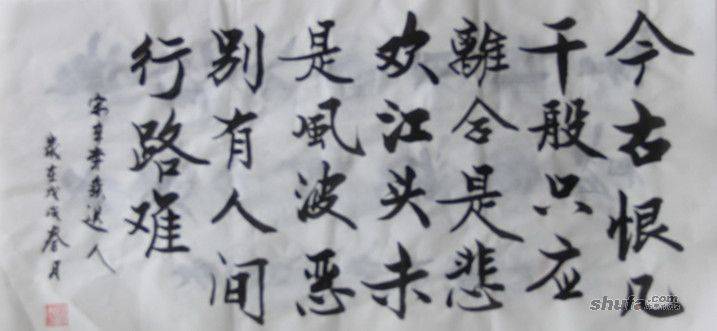 今古恨几
千般只应
離合是悲
欢江头未
是風波恶
别有人间
行路难
宋辛棄疾送人
歲在戊戌春月
shufa.com